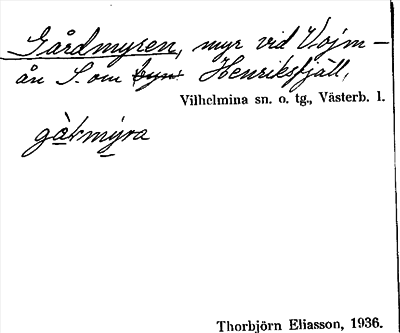 Gårdmyren, myr vid Vojm-
ån S. om byn Henriksfjäll,
Vilhelmina sn. o. tg., Västerb. l.
gàḷmýra
Thorbjörn Eliasson, 1936.